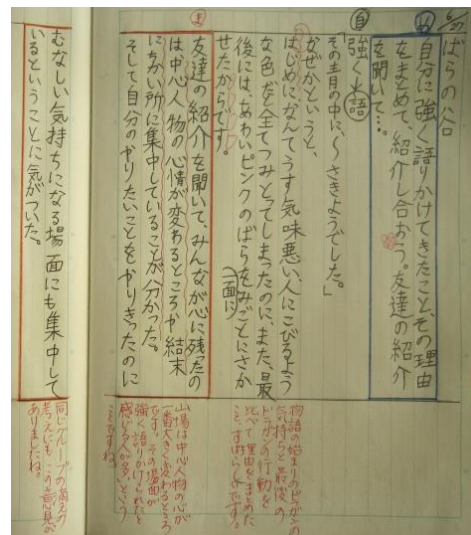 6/27
ばらの谷
め
自分に強く語りかけてきたこと、その理由
をまとめて、紹介し合おう。友達の紹介
を聞いて…。
自
強く語
「その青月の中に、〜さきようでした。」
なぜかというと、
はじめになんてうす気味悪い人にこびるよう
な色だと全てつみとってしまったのに、また、最
後には、あわいピンクのばらをみごとにさか
(一面に)
せたからです。
ま
友達の紹介を聞いて、みんなが心に残ったの
は中心人物の心情が変わるところや結末
にちかい所に集中していることが分かった。
そして自分のやりたいことをやりきったのに
むなしい気持ちになる場面にも集中して
いるということに気がついた。
物語の始まりのドガンの
気持ちと最後の
ドガンの行動を
比べて理由をまとめた
こと、すばらしいです。
山場は中心人物の心が
一番大きく変わるところ
です。その場面が
強く語りかけられたと
感じる人が多いという
ことですね。
同じグループの
考えにも、この意見が
ありましたね。